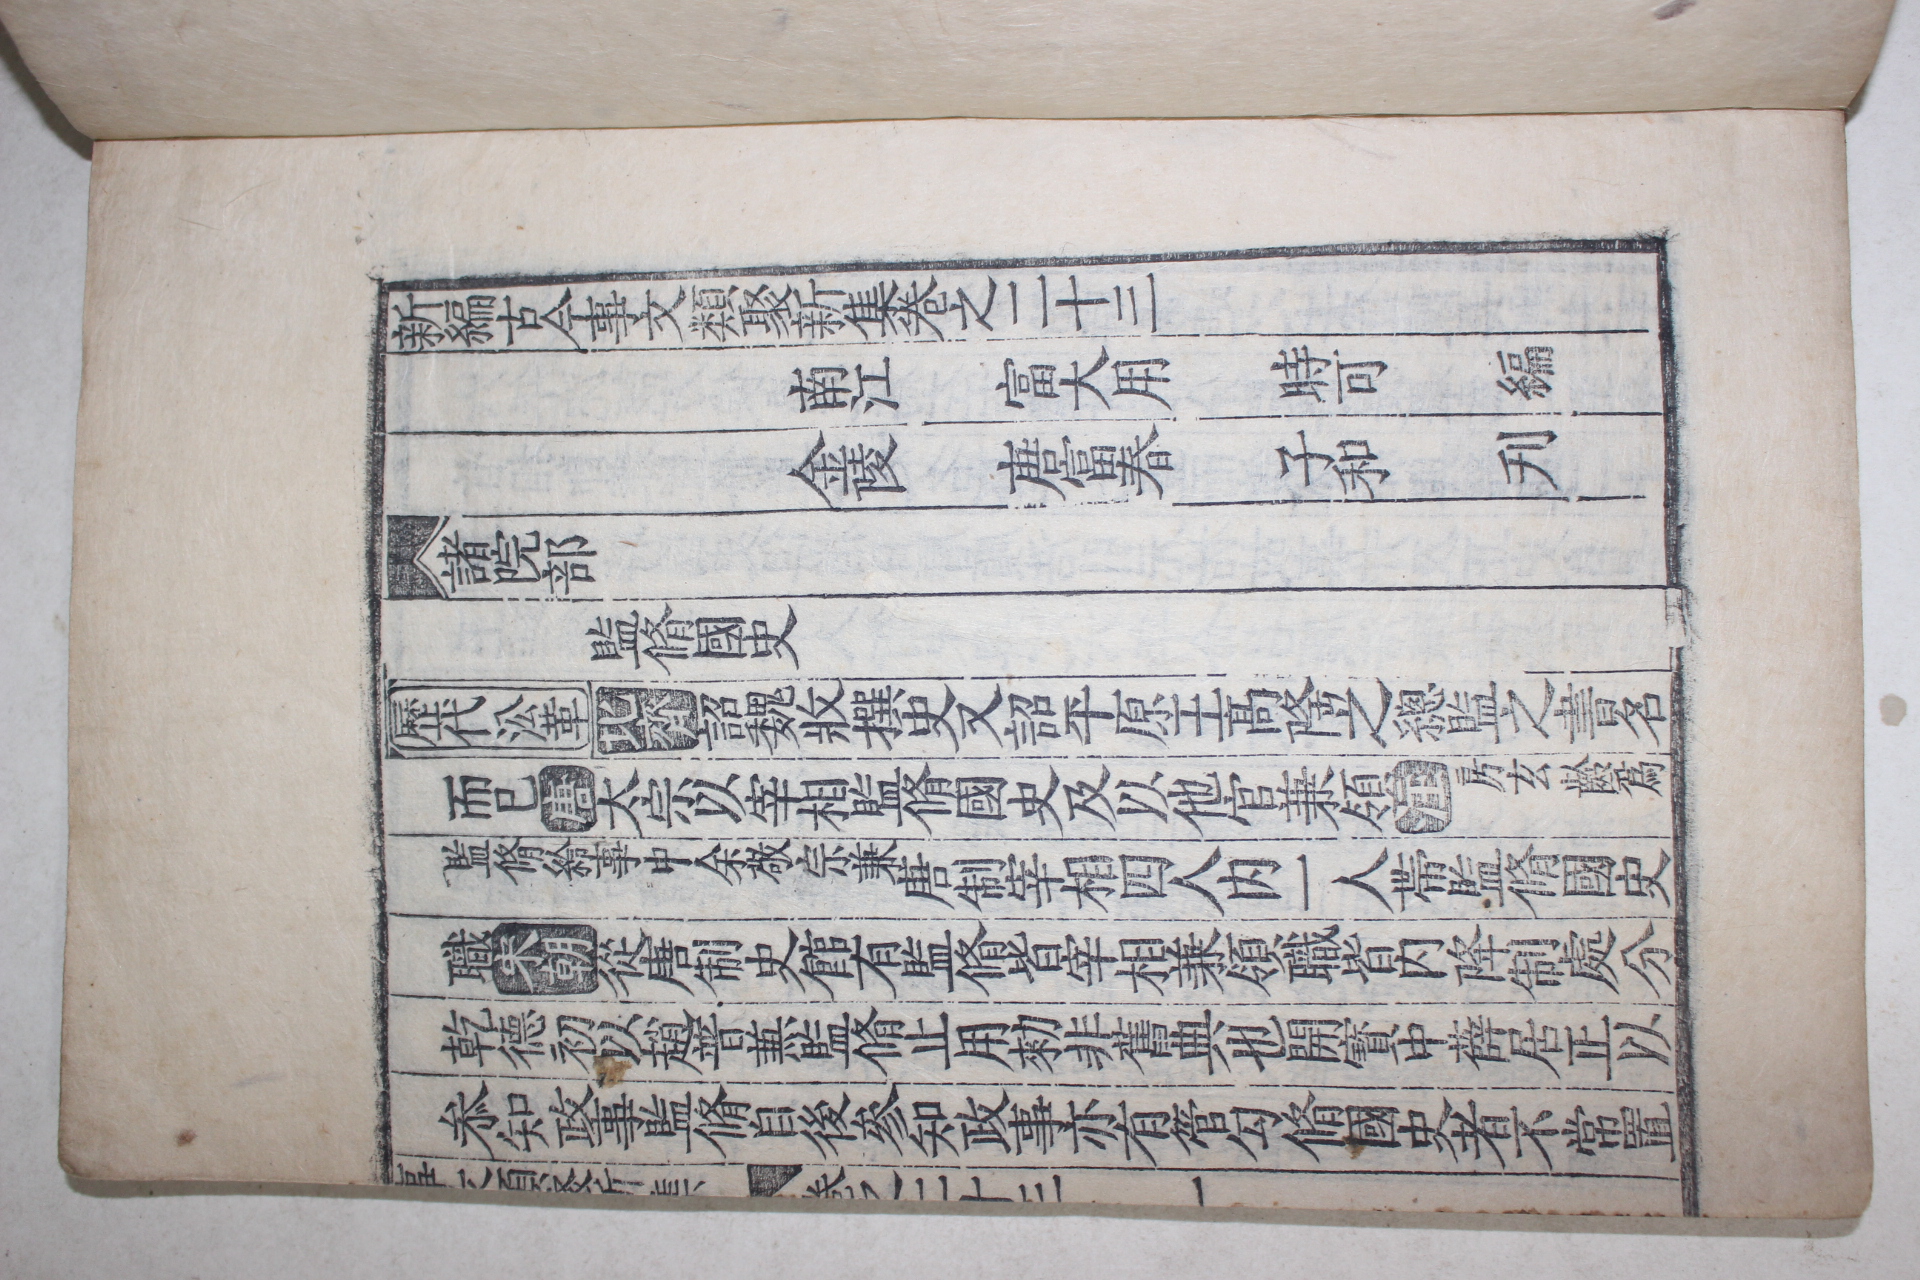 新編古今事文類聚新集卷之二十三
南江 富大用 時可 編
金陵 唐富春 子和 刋
諸院部
監脩國史
歷代㳂革 北齊 詔魏收撰史又詔平原王高隆之總監之書名
而已 唐 太宗以宰相監脩國史及以他官兼領 注 房玄齡爲
監脩給事中余敬宗兼 唐制宰相四人内一人帶監脩國史
職 宋朝 從唐制史館有監脩皆宰相兼領職皆内降制處分
乾德初以趙普兼監脩止用勑非舊典也開寳中薛居正以
叅知政事監脩自後參知政事亦有管勾脩國史者不常置
事文類聚新集 卷之二十三 一